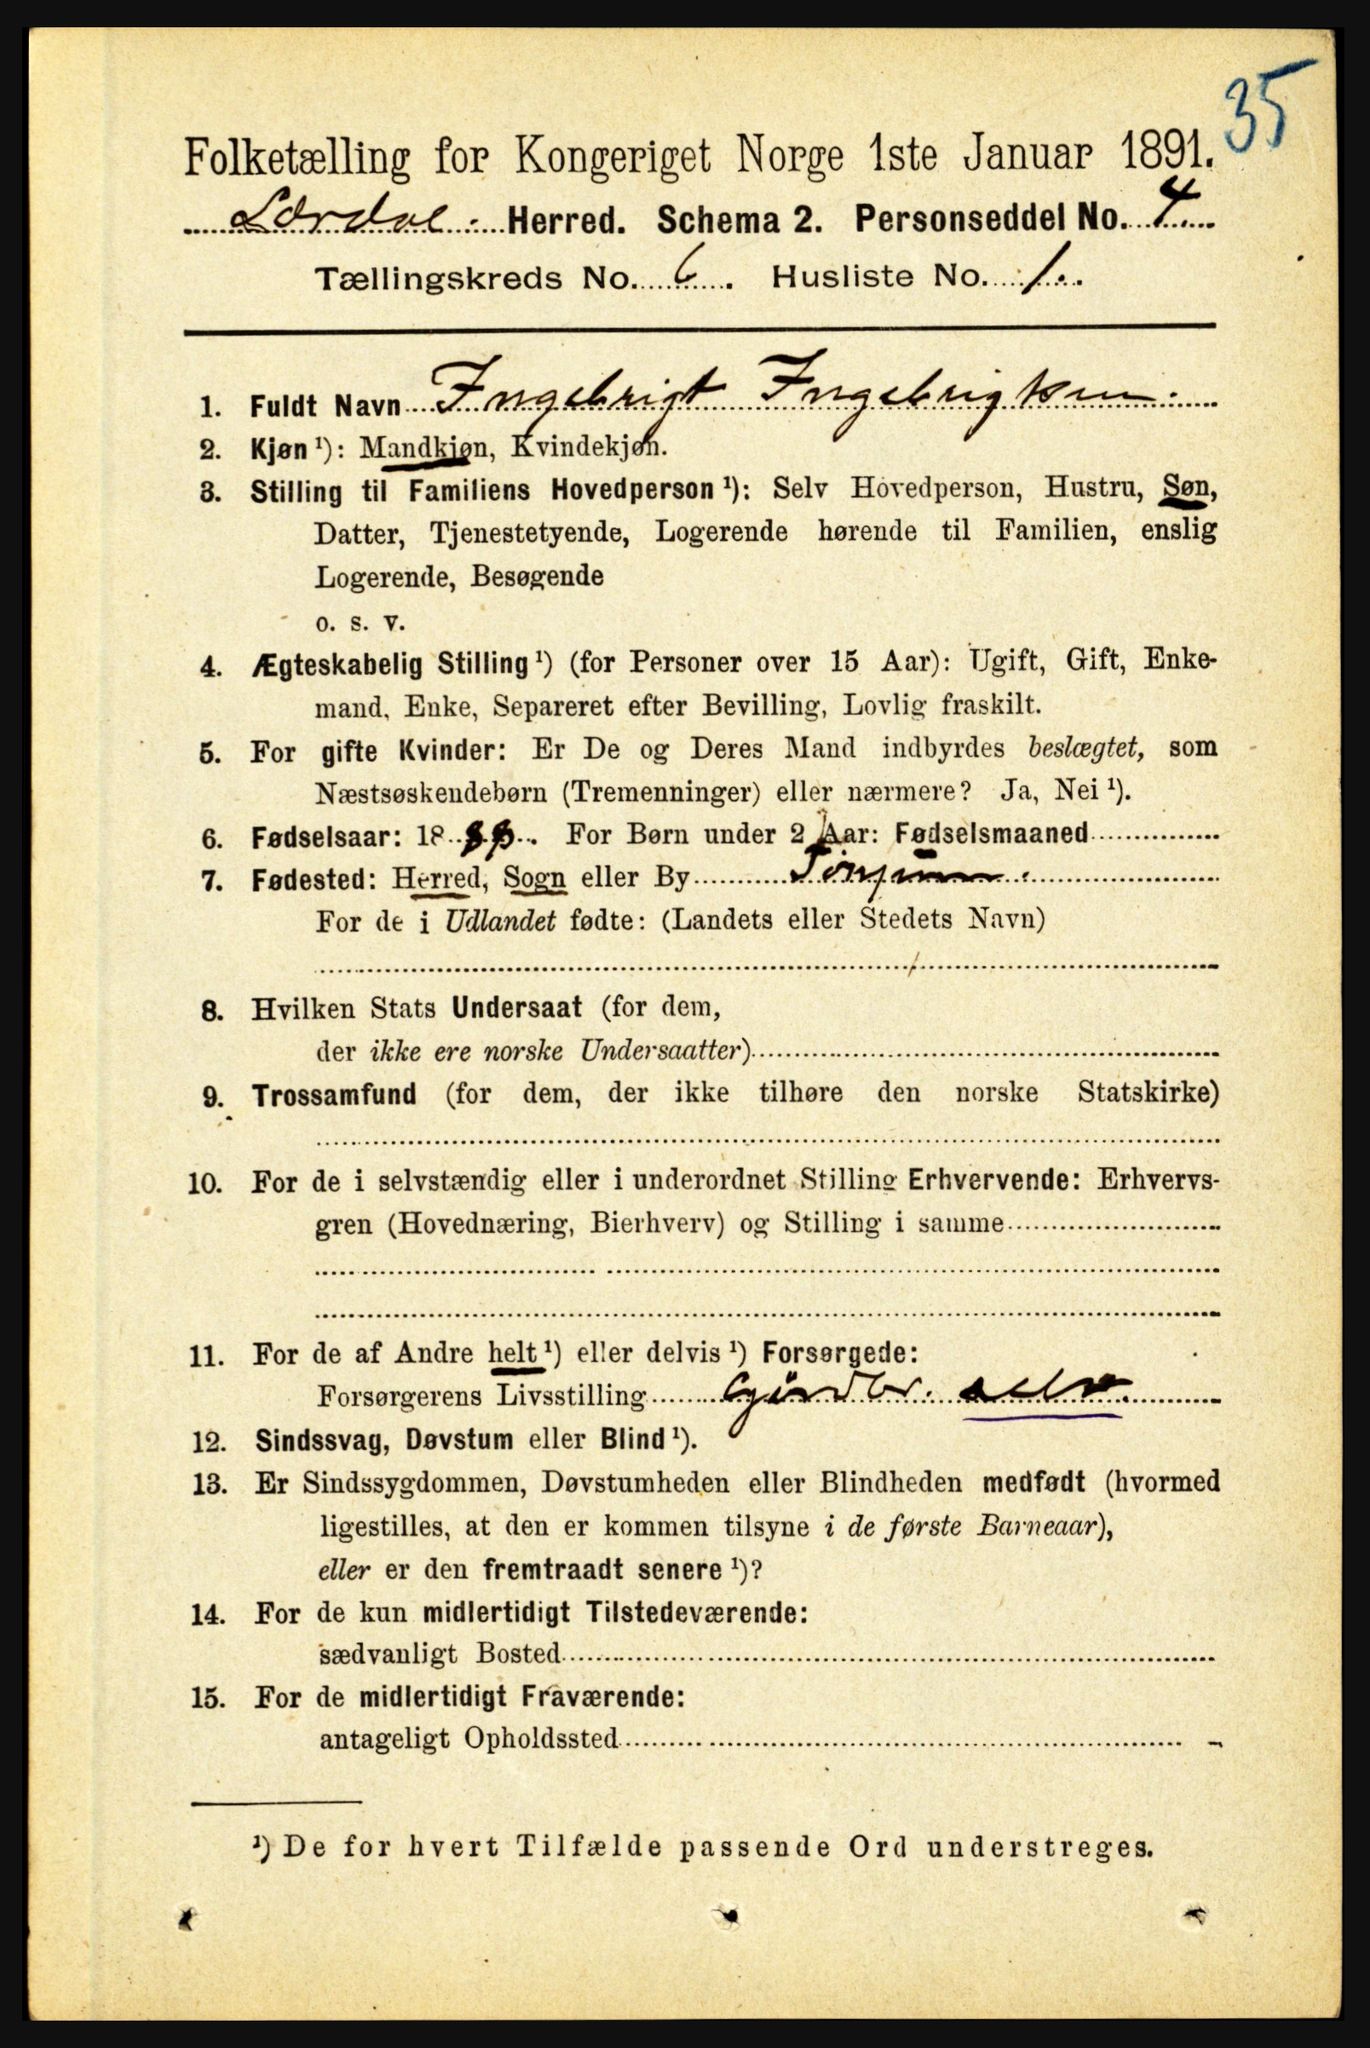 35
Folketælling for Kongeriget Norge 1ste Januar 1891.
Lærdal. Herred. Schema 2. Personseddel No. 4
Tællingskreds No. 6. Husliste No. 1.
1. Fuldt Navn Ingebrigt Ingebrigtsen.
2. Kjøn ¹): Mandkjøn, Kvindekjøn.
3. Stilling til Familiens Hovedperson ¹): Selv Hovedperson, Hustru, Søn,
Datter, Tjenestetyende, Logerende hørende til Familien, enslig
Logerende, Besøgende
o. s. v.
4. Ægteskabelig Stilling ¹) (for Personer over 15 Aar): Ugift, Gift, Enke-
mand, Enke, Separeret efter Bevilling, Lovlig fraskilt.
5. For gifte Kvinder: Er De og Deres Mand indbyrdes beslægtet, som
Næstsøskendebørn (Tremenninger) eller nærmere? Ja, Nei ¹).
6. Fødselsaar: 18 . For Børn under 2 Aar: Fødselsmaaned
7. Fødested: Herred, Sogn eller By Tønjum.
For de i Udlandet fødte: (Landets eller Stedets Navn)
8. Hvilken Stats Undersaat (for dem,
der ikke ere norske Undersaatter)
9. Trossamfund (for dem, der ikke tilhøre den norske Statskirke)
10. For de i selvstændig eller i underordnet Stilling Erhvervende: Erhvervs-
gren (Hovednæring, Bierhverv) og Stilling i samme
11. For de af Andre helt ¹) eller delvis ¹) Forsørgede:
Forsørgerens Livsstilling Gårdbr. selv.
12. Sindssvag, Døvstum eller Blind ¹).
13. Er Sindssygdommen, Døvstumheden eller Blindheden medfødt (hvormed
ligestilles, at den er kommen tilsyne i de første Barneaar),
eller er den fremtraadt senere ¹)?
14. For de kun midlertidigt Tilstedeværende:
sædvanligt Bosted
15. For de midlertidigt Fraværende:
antageligt Opholdssted
¹) De for hvert Tilfælde passende Ord understreges.